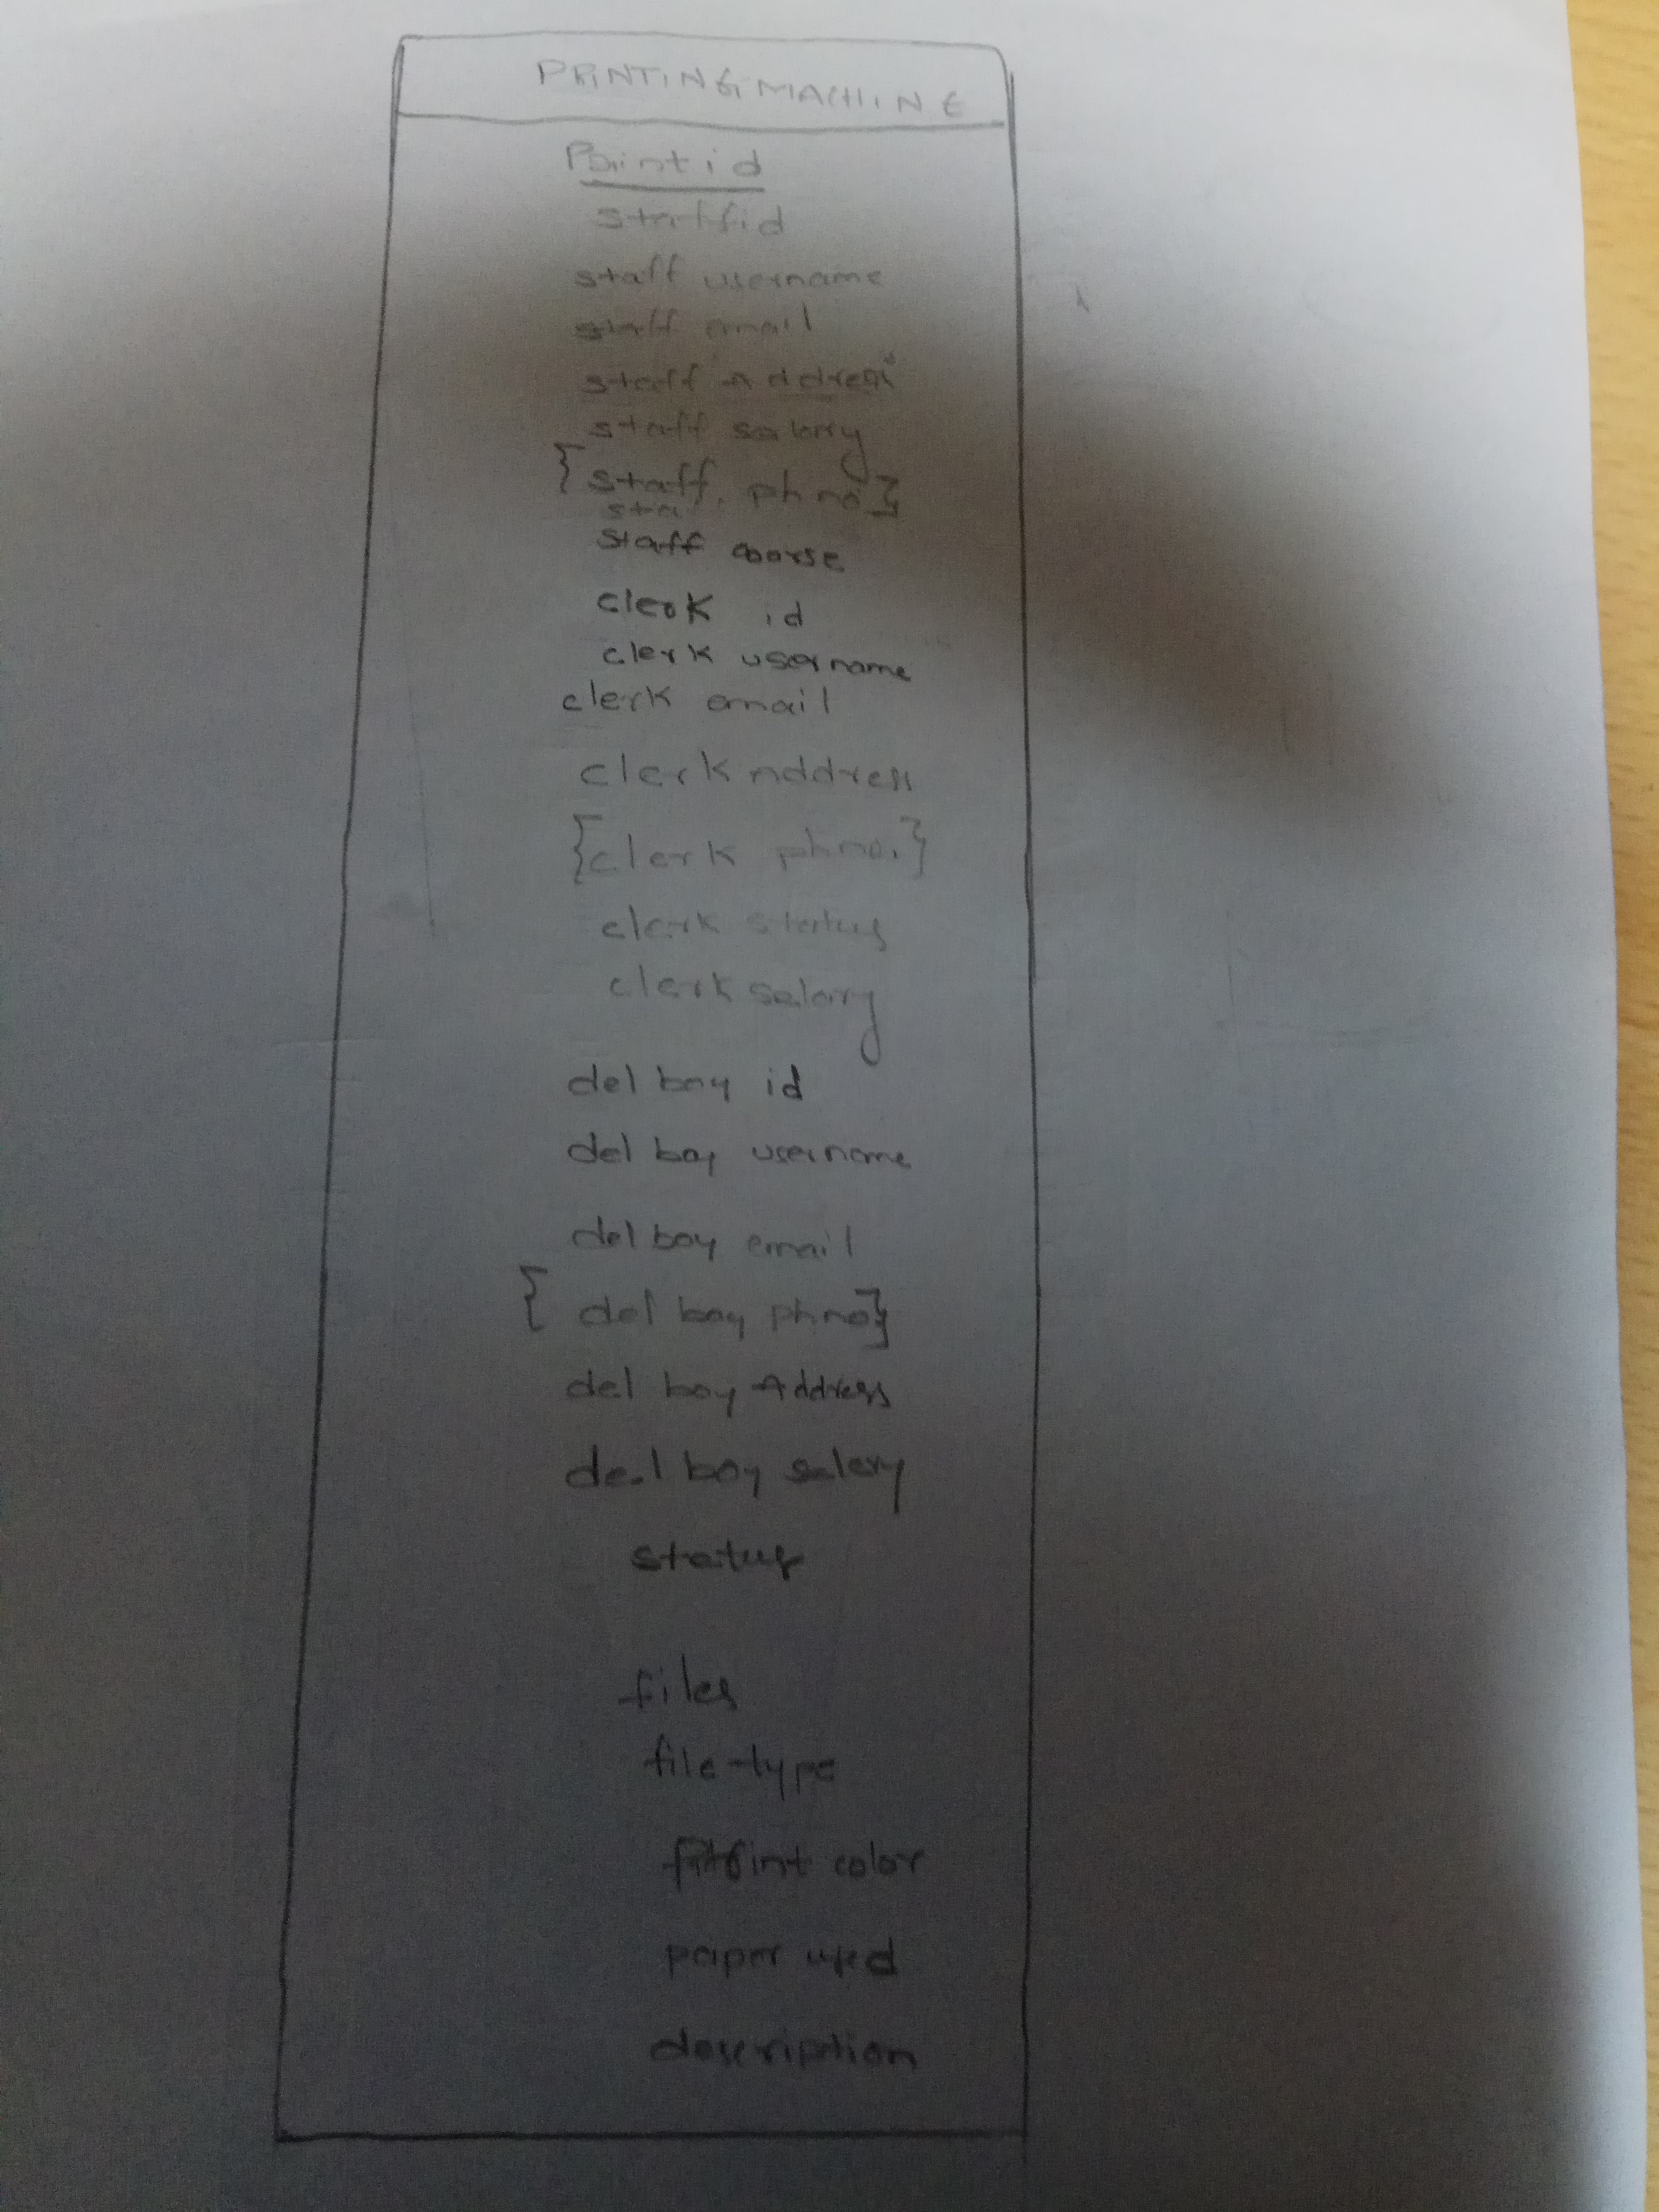 PRINTING MACHINE
Print id
staff id
staff username
staff email
staff Address
staff salary
{staff. phno}
sta
staff course
clerk id
clerk username
clerk email
clerk Address
{clerk phno.}
clerk status
clerk salary
del boy id
del boy username
del boy email
{ del boy phno}
del boy Address
del boy salary
status
files
file-type
print color
paper used
description